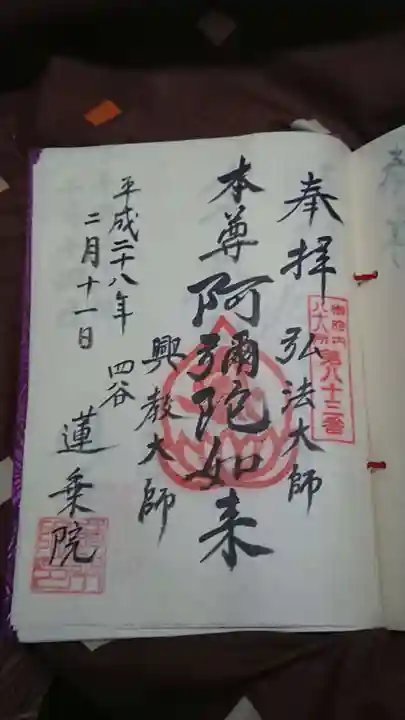 奉拝
御府内
八十八所
第八十三番
弘法大師
本尊阿彌陀如来
興教大師
平成二十八年
二月十一日
四谷
蓮乗院